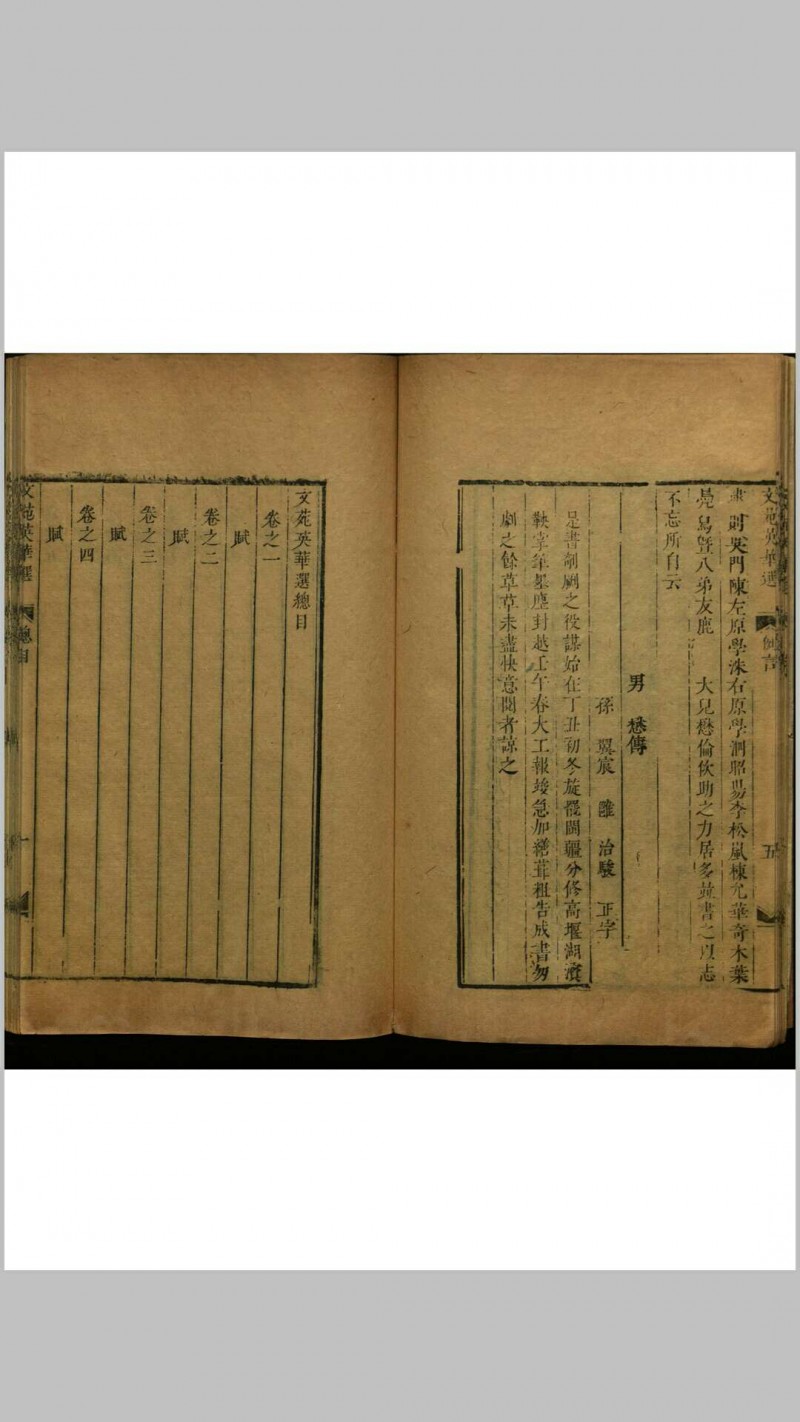 文苑英華選 例言 五
則吳門陳左原學洙右原學泗昭陽李松嵐棟允華奇木葉
鳧島暨八弟友鹿 大兒懋倫佽助之力居多竝書之以志
不忘所自云
男 懋傳
孫 翼宸 雝 治駿 正字
是書剞劂之役謀始在丁丑初冬旋罷閩疆分修高堰湖濱
鞅掌筆墨塵封越壬午春大工報竣急加繕葺粗告成書匆
劇之餘草草未盡快意閱者諒之
文苑英華選總目
卷之一
賦
卷之二
賦
卷之三
賦
卷之四
賦
文苑英華選 總目 一